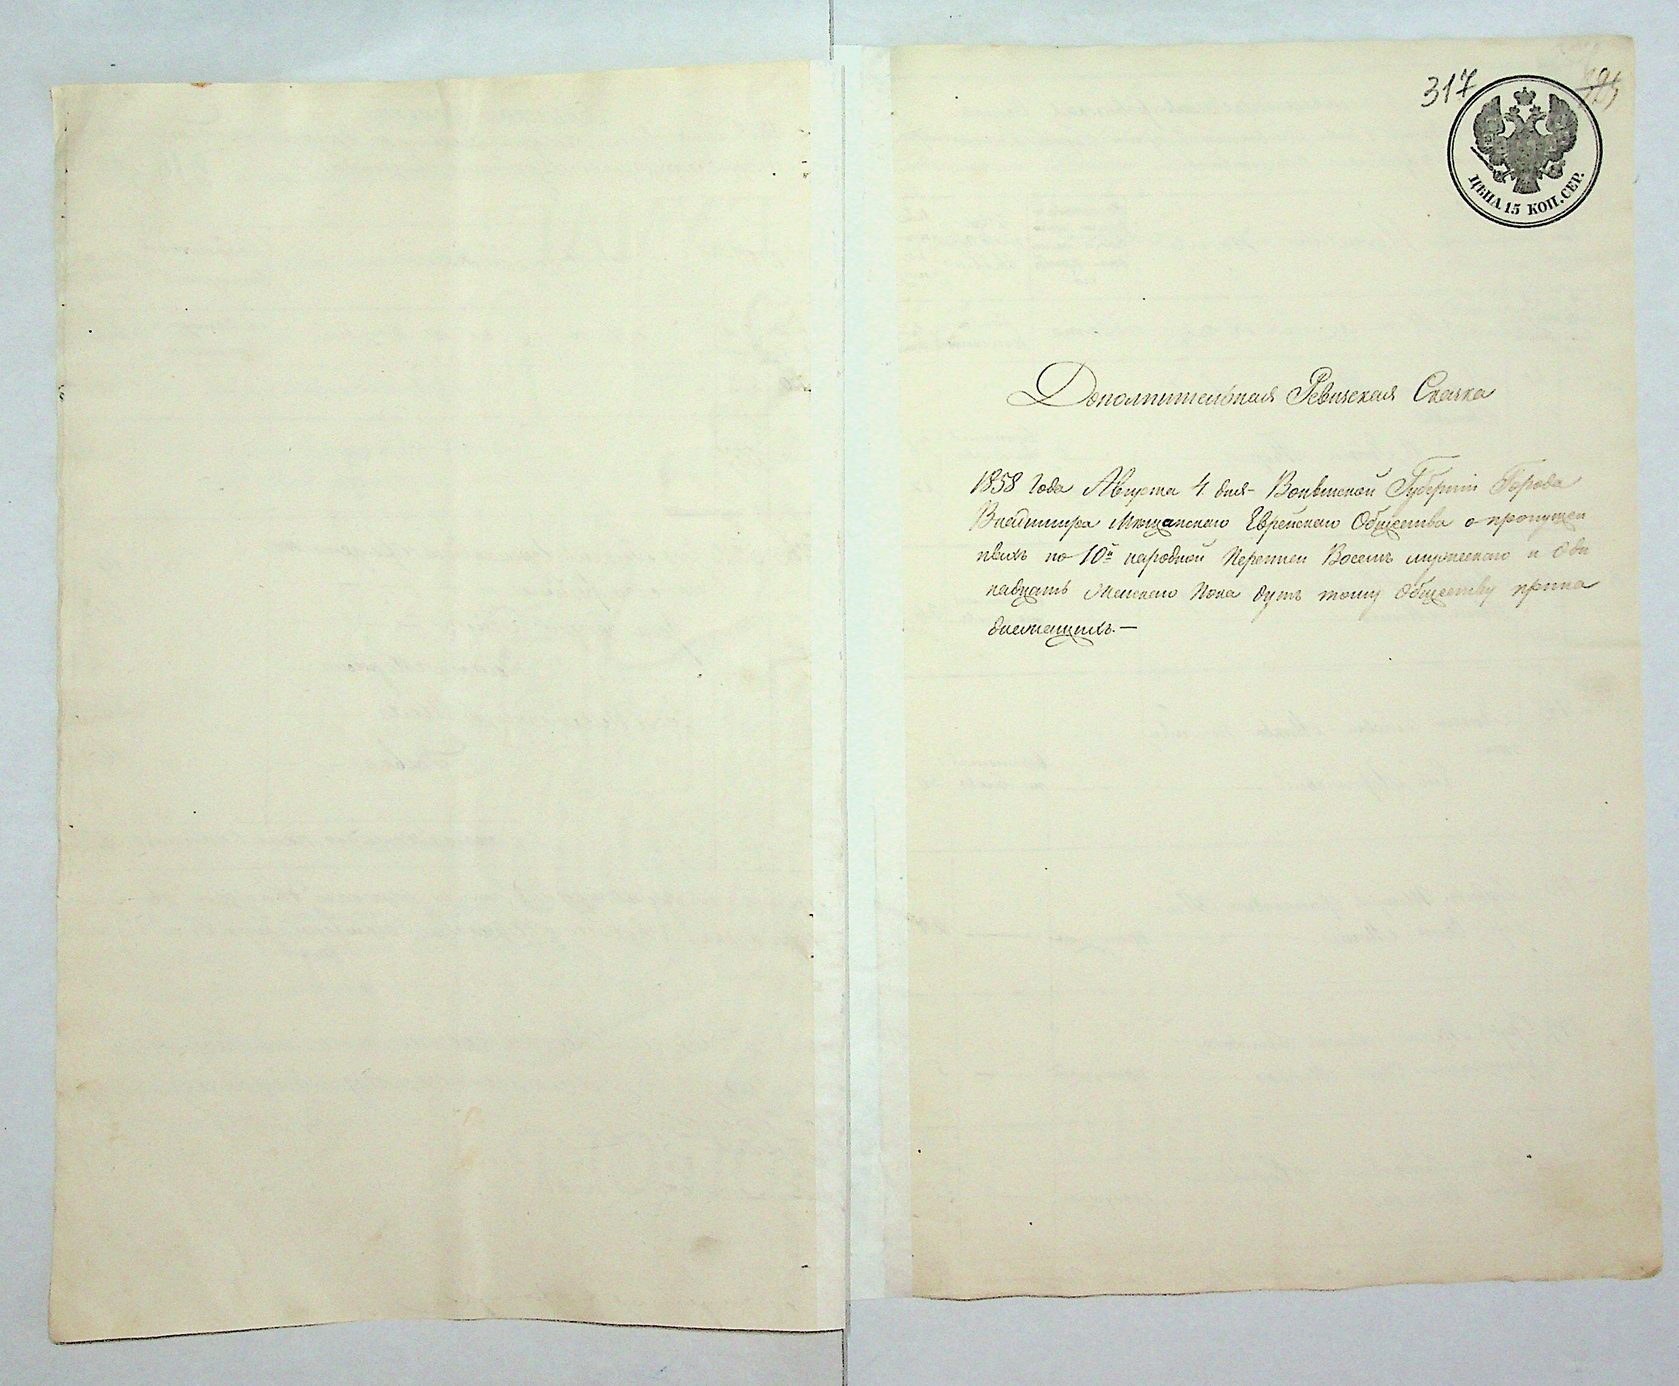 317
ЦѢНА 15 КОП. СЕР.
Дополнительная Ревизская Сказка
1858 года Августа 4. дня Волынской Губерніи Города
Владимира Мещанскаго Еврейскаго Общества о пропущен
ныхъ по 10й народной Переписи Восемъ мужескаго и Оди
надцать Женскаго Пола душъ тому Обществу прина
длежащихъ.—